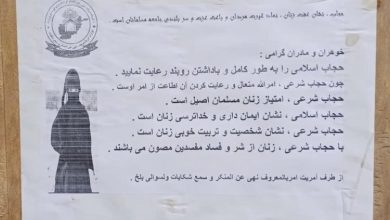 خوهران و مادران گرامی :
حجاب اسلامی را به طور کامل و باداشتن روبند رعایت نمایید .
چون حجاب شرعی ، امرالله متعال و رعایت کردن آن اطاعت از امر اوست .
حجاب شرعی ، امتیاز زنان مسلمان اصیل است .
حجاب اسلامی ، نشان ایمان داری و خداترسی زنان است .
حجاب شرعی ، نشان شخصیت و تربیت خوبی زنان است .
با حجاب شرعی ، زنان از شر و فساد مفسدین مصون می باشند .
از طرف آمریت امربالمعروف نهی عن المنکر و سمع شکایات ولسوالی بلخ .